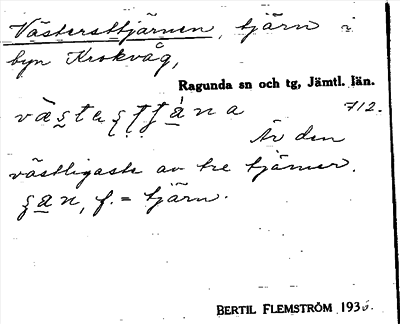 Västersttjärnen, tjärn i
byn Krokvåg,
Ragunda sn och tg, Jämtl. län.
712.
Är den
västligaste av tre tjärner.
f. = tjärn.
BERTIL FLEMSTRÖM 193